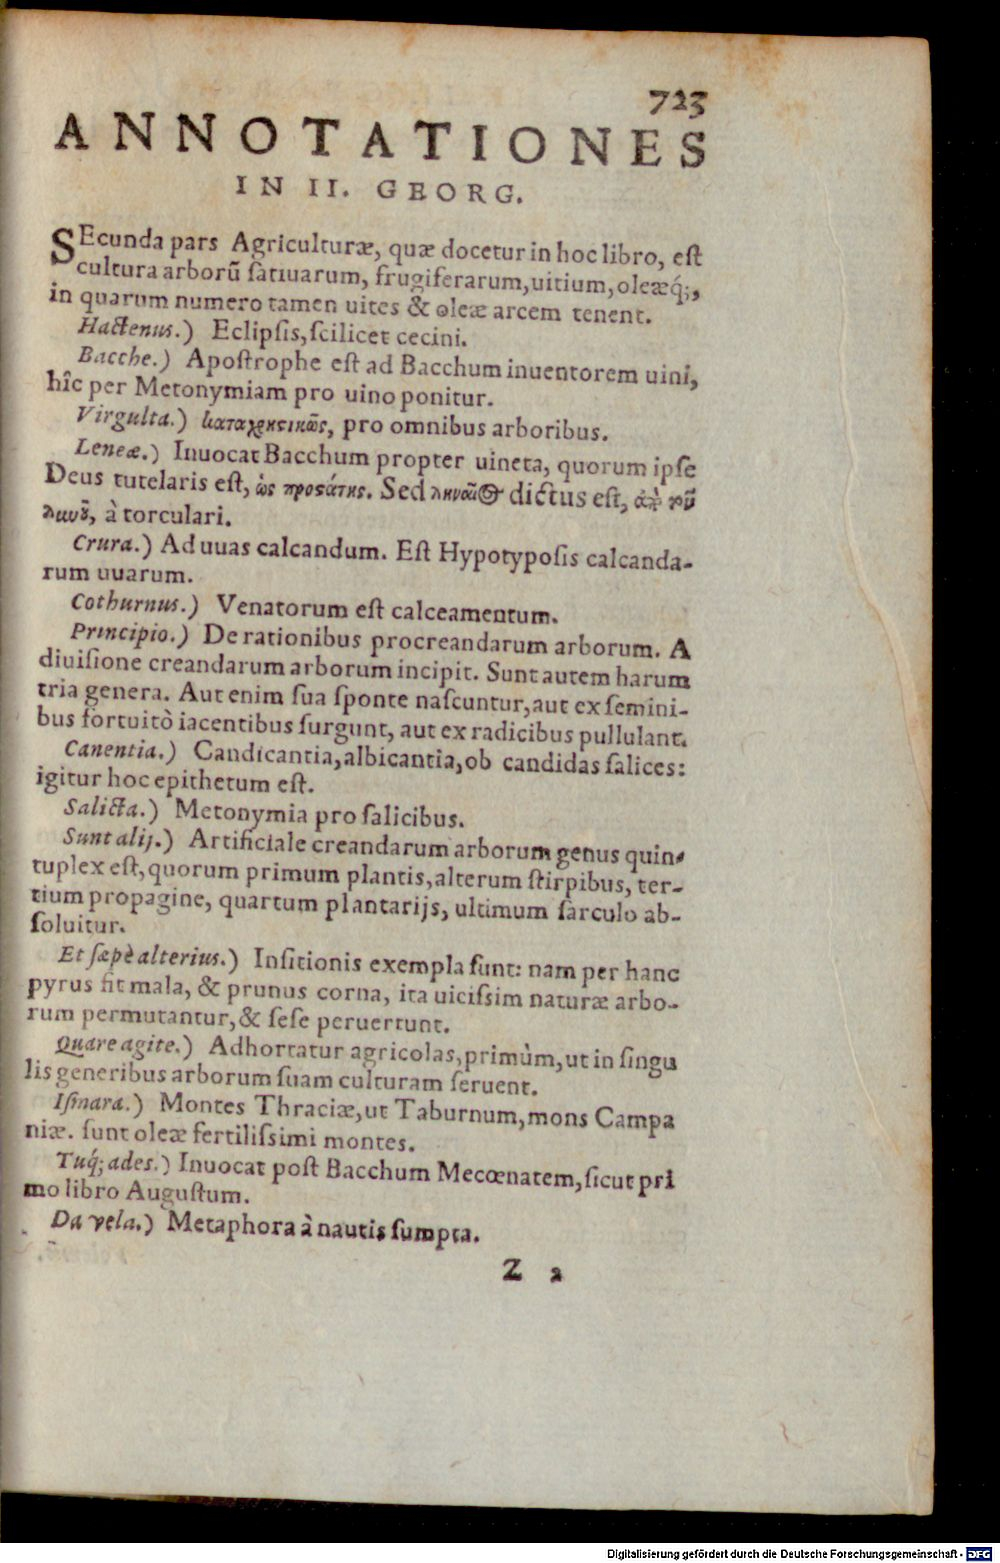 723
ANNOTATIONES
IN II. GEORG.
SEcunda pars Agriculturæ, quæ docetur in hoc libro, est
cultura arborũ satiuarum, frugiferarum, uitium, oleæq́;,
in quarum numero tamen uites & oleæ arcem tenent.
Hactenus.) Eclipsis, scilicet cecini.
Bacche.) Apostrophe est ad Bacchum inuentorem uini,
hîc per Metonymiam pro uino ponitur.
Virgulta.) καταχρηστικῶς, pro omnibus arboribus.
Leneæ.) Inuocat Bacchum propter uineta, quorum ipse
Deus tutelaris est, ὡς προστάτης. Sed ληναῖος dictus est, ἀπὸ τοῦ
ληνοῦ, à torculari.
Crura.) Ad uuas calcandum. Est Hypotyposis calcanda-
rum uuarum.
Cothurnus.) Venatorum est calceamentum.
Principio.) De rationibus procreandarum arborum. A
diuisione creandarum arborum incipit. Sunt autem harum
tria genera. Aut enim sua sponte nascuntur, aut ex semini-
bus fortuitò iacentibus surgunt, aut ex radicibus pullulant.
Canentia.) Candicantia, albicantia, ob candidas salices:
igitur hoc epithetum est.
Salicta.) Metonymia pro salicibus.
Sunt alij.) Artificiale creandarum arborum genus quin-
tuplex est, quorum primum plantis, alterum stirpibus, ter-
tium propagine, quartum plantarijs, ultimum sarculo ab-
soluitur.
Et sæpè alterius.) Insitionis exempla sunt: nam per hanc
pyrus fit mala, & prunus corna, ita uicissim naturæ arbo-
rum permutantur, & sese peruertunt.
Quare agite.) Adhortatur agricolas, primùm, ut in singu
lis generibus arborum suam culturam seruent.
Ismara.) Montes Thraciæ, ut Taburnum, mons Campa
niæ. sunt oleæ fertilissimi montes.
Tuq́; ades.) Inuocat post Bacchum Mecœnatem, sicut pri
mo libro Augustum.
Da vela.) Metaphora à nautis sumpta.
Z 2
Digitalisierung gefördert durch die Deutsche Forschungsgemeinschaft - DFG